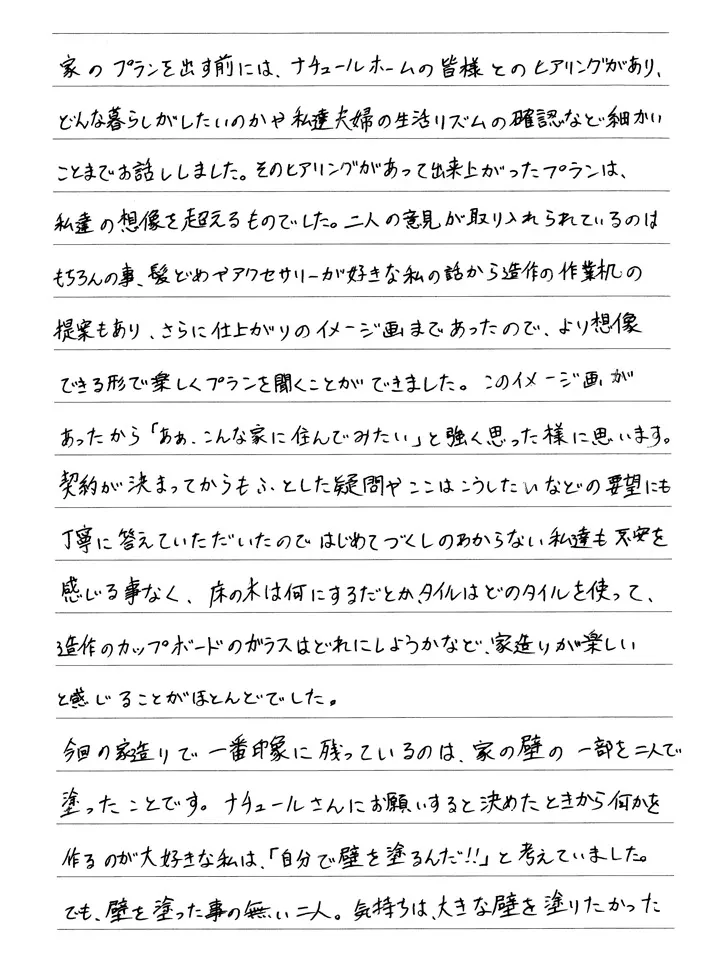 家のプランを出す前には、ナチュールホームの皆様とのヒアリングがあり、
どんな暮らしがしたいのかや私達夫婦の生活リズムの確認など細かい
ことまでお話ししました。そのヒアリングがあって出来上がったプランは、
私達の想像を超えるものでした。二人の意見が取り入れられているのは
もちろんの事、髪どめやアクセサリーが好きな私の話から造作の作業机の
提案もあり、さらに仕上がりのイメージ画まであったので、より想像
できる形で楽しくプランを聞くことができました。このイメージ画が
あったから「あぁ、こんな家に住んでみたい」と強く思った様に思います。
契約が決まってからもふとした疑問やここはこうしたいなどの要望にも
丁寧に答えていただいたのではじめてづくしのわからない私達も不安を
感じる事なく、床の木は何にするだとか、タイルはどのタイルを使って、
造作のカップボードのガラスはどれにしようかなど、家造りが楽しい
と感じることがほとんどでした。
今回の家造りで一番印象に残っているのは、家の壁の一部を二人で
塗ったことです。ナチュールさんにお願いすると決めたときから何かを
作るのが大好きな私は、「自分で壁を塗るんだ!!」と考えていました。
でも、壁を塗った事の無い二人。気持ちは、大きな壁を塗りたかった